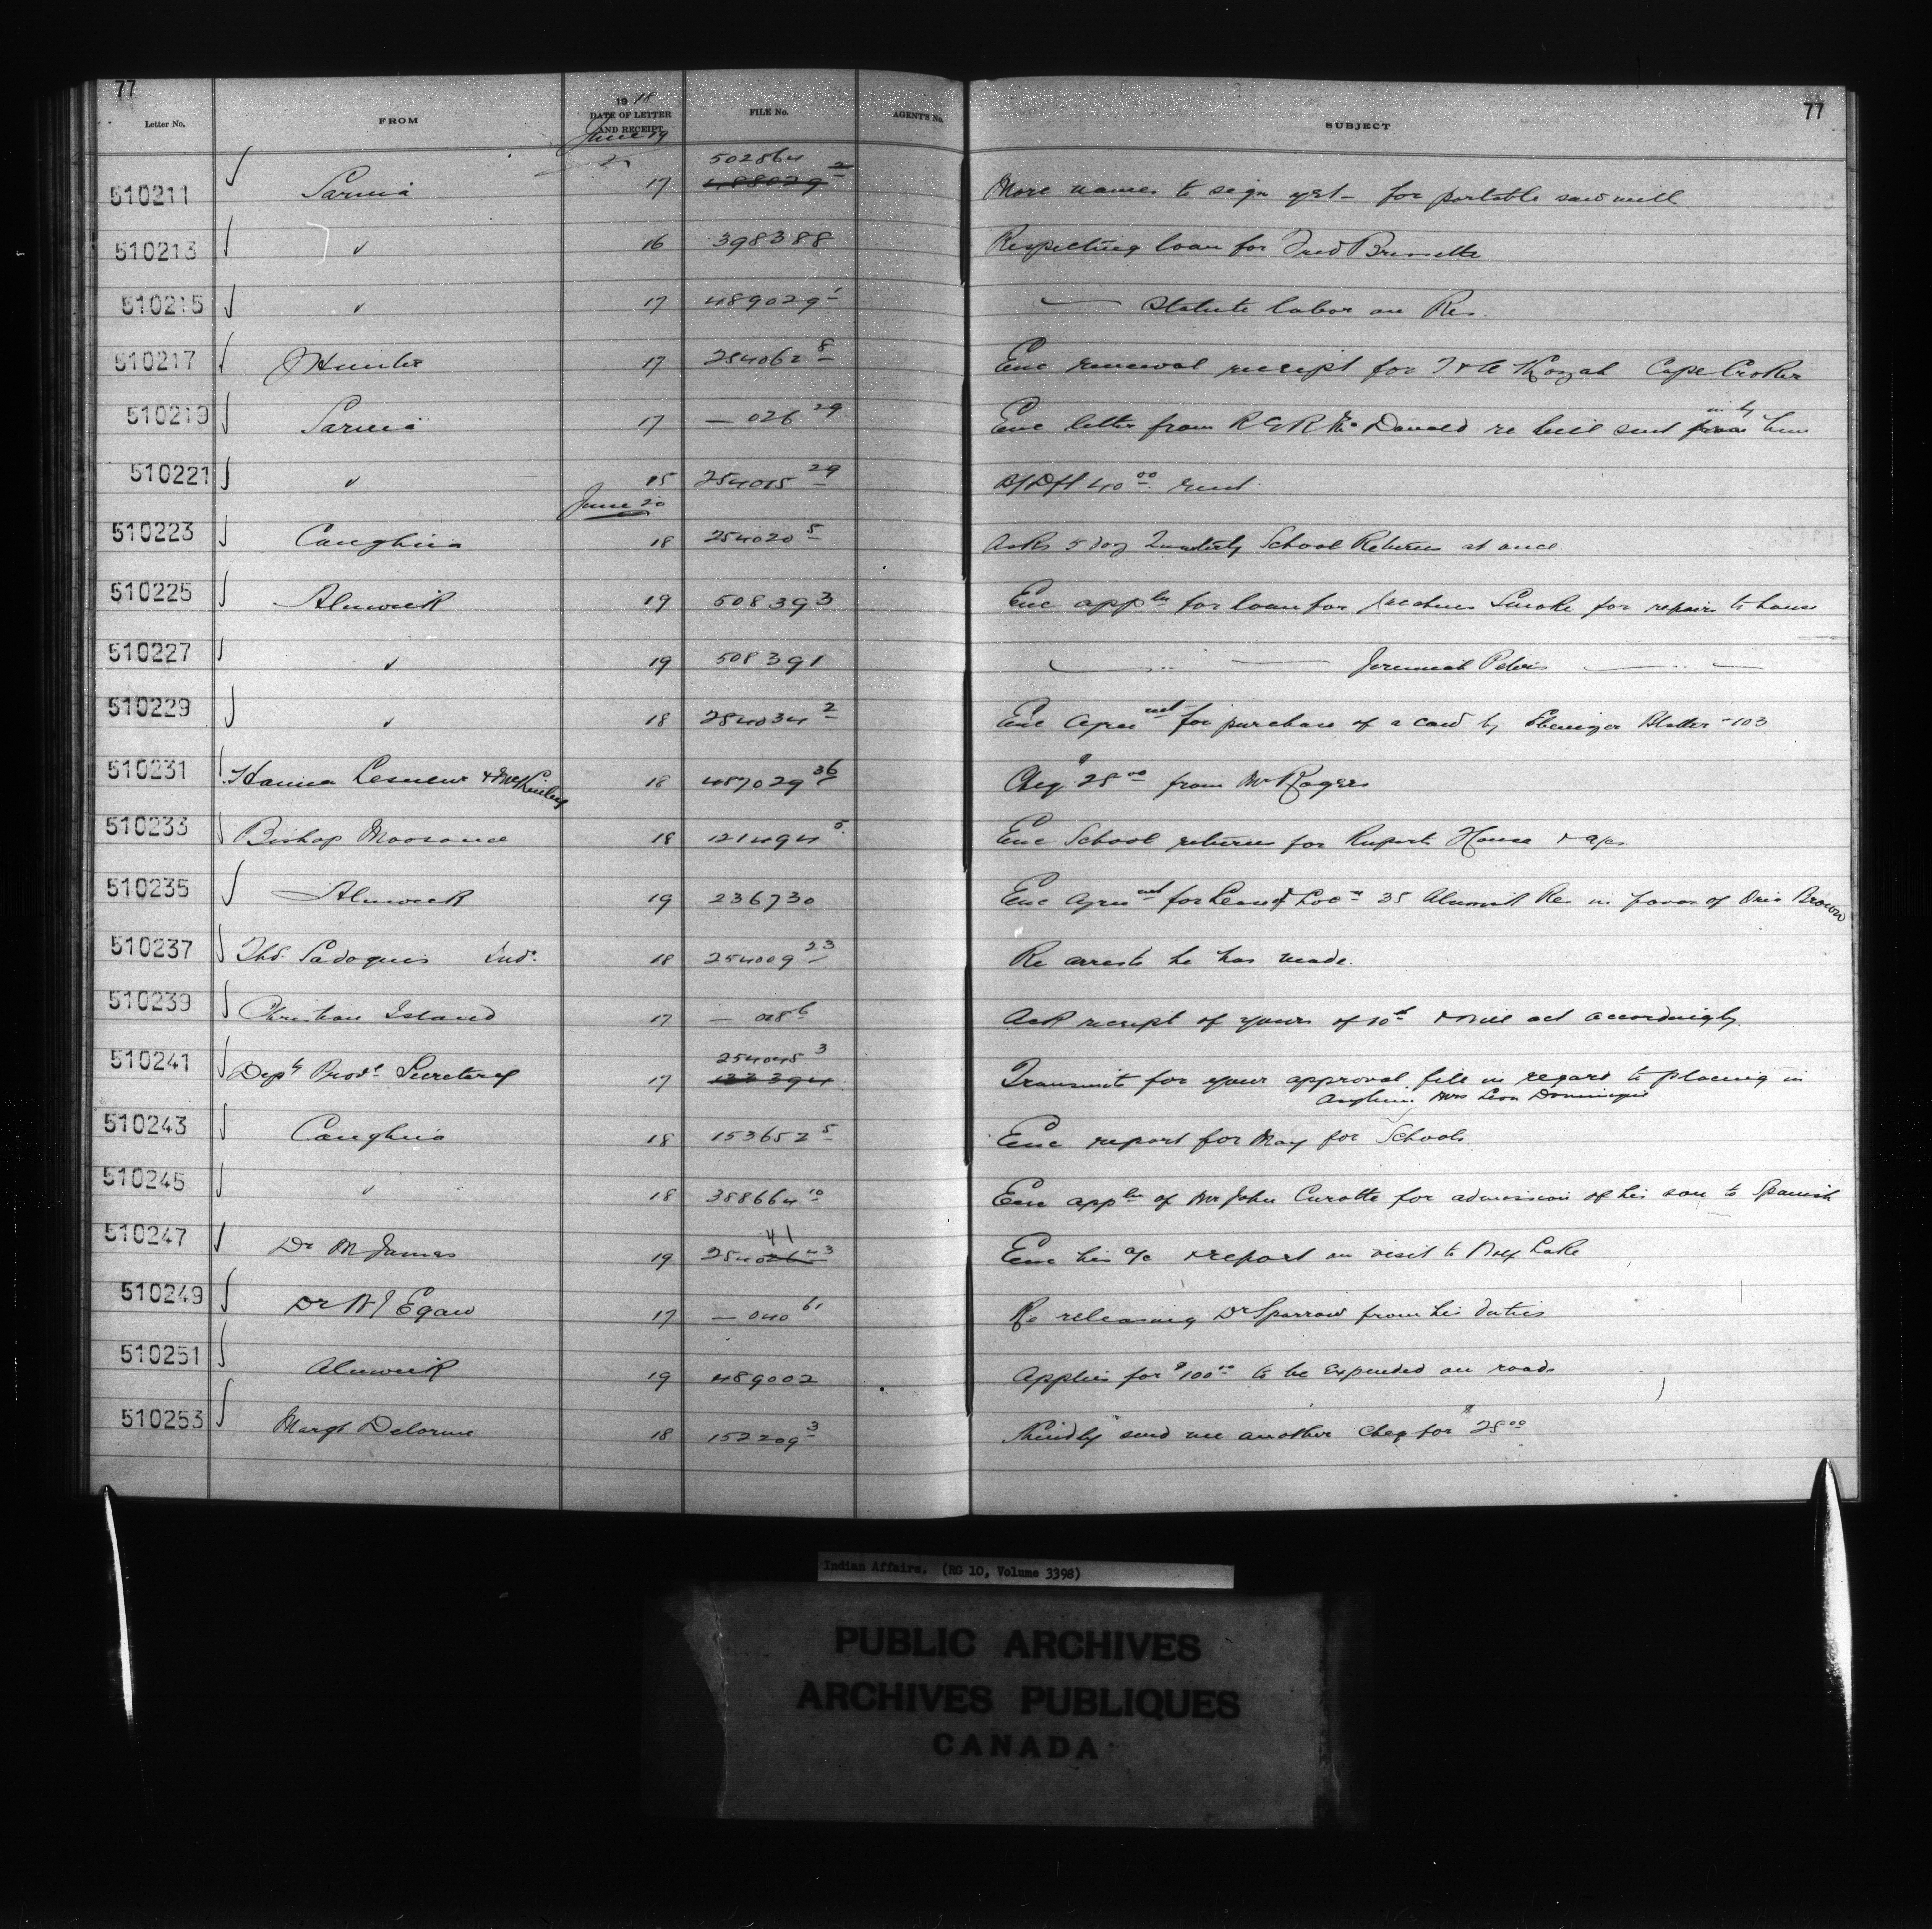 77 77
Letter No. FROM 19 18 DATE OF LETTER AND RECEIPT FILE No. AGENT'S No. SUBJECT
June 19
502864
510211 Sarnia 17 488029 2 More names to sign yet - for portable saw mill
510213 " 16 398388 Respecting loan for Fred Bressette
510215 " 17 489029 1 — Statute labor on Res.
510217 J Hunter 17 254062 8 Enc renewal receipt for Cape Croker
510219 Sarnia 17 — 026 29 Enc letter from R G R McDonald re bill sent him
510221 " 15 254015 29 40 00 rent
June 20
510223 Caughna 18 254020 5 Asks 5 day Quarterly School Returns at once
510225 Alnwick 19 508393 Enc appln for loan for Smoke for repairs to house
510227 " 19 508391 — " — Jeremiah Peters — " —
510229 " 18 254034 2 Enc Agreemt for purchase of a cow by Ebenezer - 103
510231 Hanna Lesueur & McKinley 18 487029 36 Cheq $28 00 from Mr Rogers
510233 Bishop Moosonee 18 121494 5 Enc School returns for Ruperts House & a/cs
510235 Alnwick 19 236730 Enc Agreemt for Lease of Locn 35 Alnwick Res in favor of Brown
510237 Thos. Sadoques Ind. 18 254009 23 Re arrests he has made.
510239 Christian Island 17 — 018 6 Ack receipt of yours of 10th & will act accordingly.
254045 3
510241 Depty Provl Secretary 17 133394 Transmits for your approval file in regard to placing in
Asylum Mrs Leon Dominique
510243 Caughna 18 153652 5 Enc report for May for Schools.
510245 " 18 388664 10 Enc appln of Mr John Curotte for admission of his son to Spanish
41
510247 Dr M James 19 254026 43 Enc his a/c & report on visit to Lake
510249 Dr W J Egan 17 — 040 61 Re releasing Dr Sparrow from his duties
510251 Alnwick 19 489002 Applies for $100 00 to be expended on roads
510253 Margt Delorme 18 152209 3 Kindly send me another cheq for $25 00
Indian Affairs. (RG 10, Volume 3398)
PUBLIC ARCHIVES
ARCHIVES PUBLIQUES
CANADA